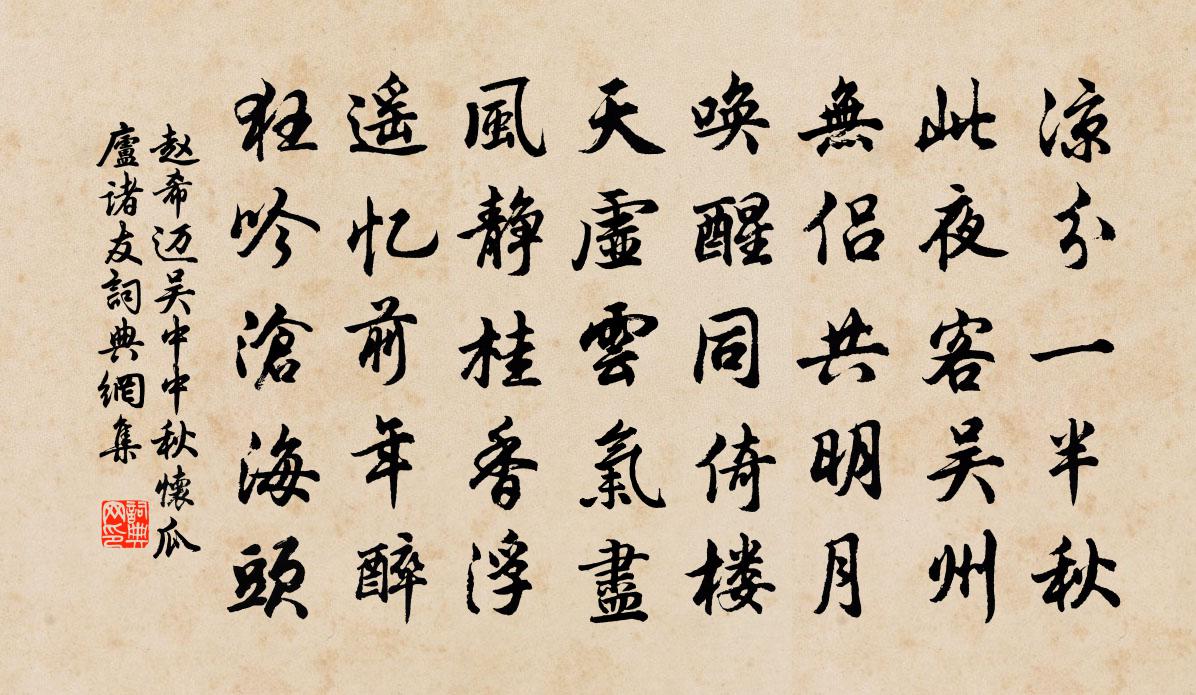 涼分一半秋
此夜客吴州
無侣共明月
唤醒同倚楼
天虛雲氣盡
風静桂香浮
遥忆前年醉
狂吟滄海頭
赵希迈吴中中秋懷瓜
廬诸友詞典網集
詞典
网印